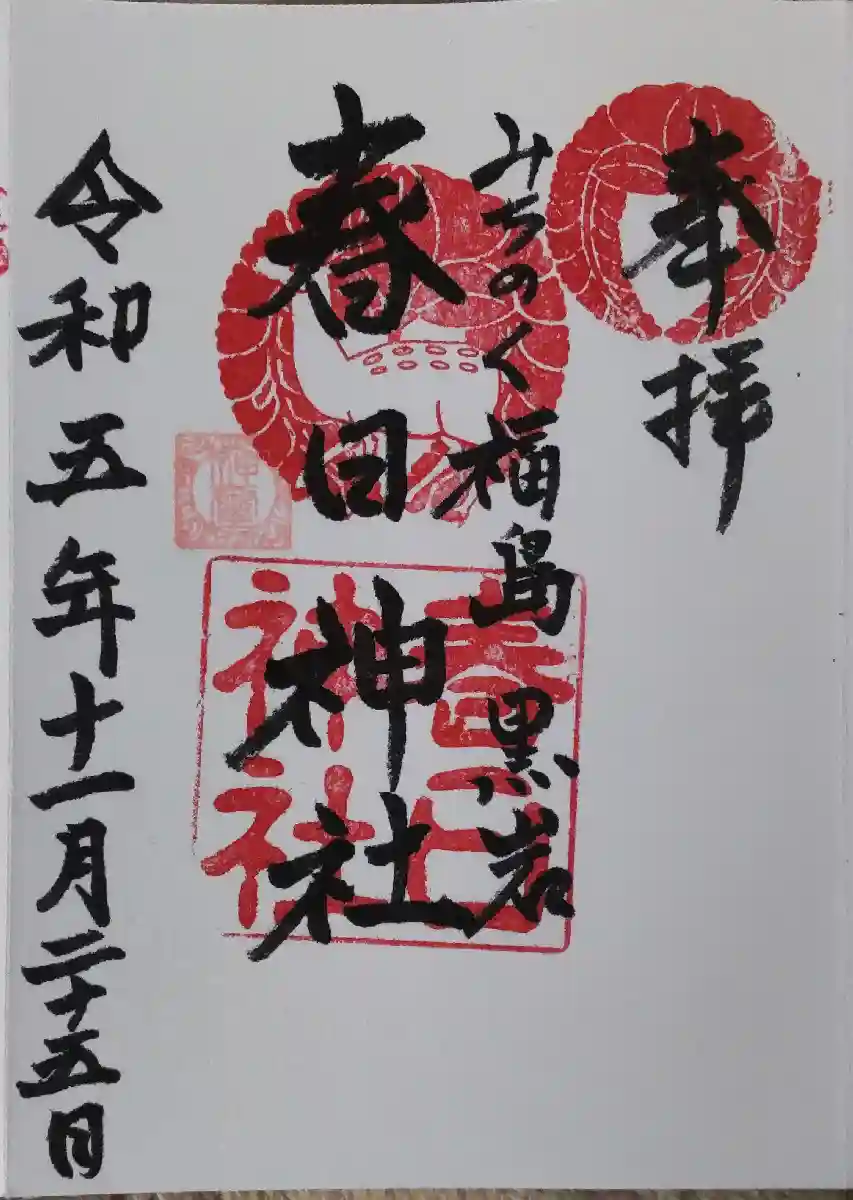 奉拝
みちのく福島 黒岩
春日神社
春日神社
令和五年十一月二十五日